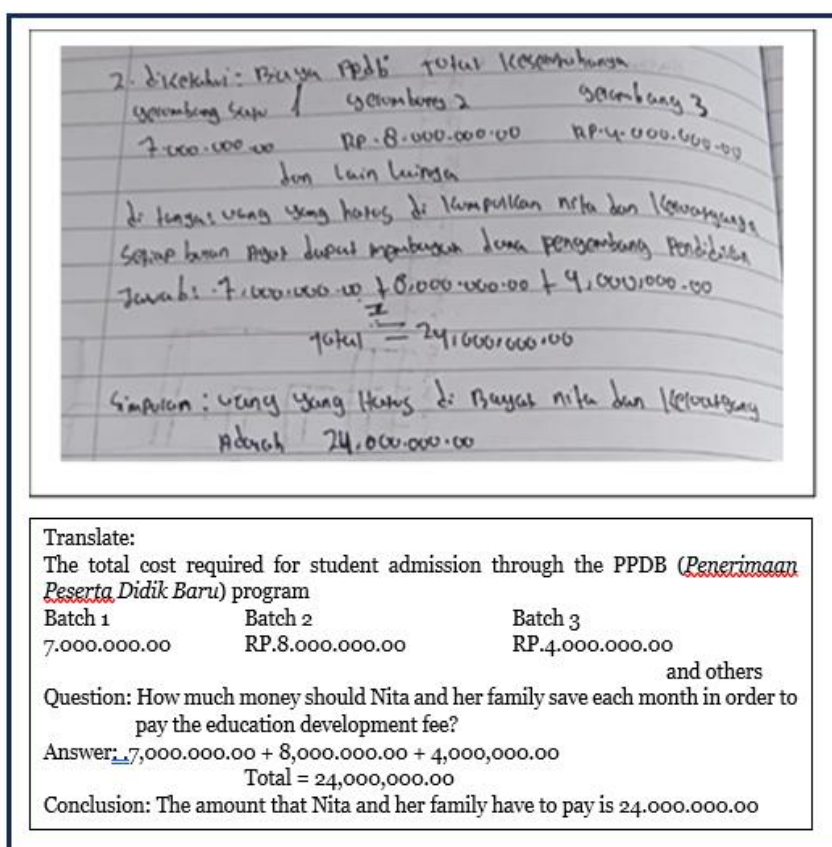 2. diketahui: Biaya Ppdb total keseluruhanya
gerombang satu 1 gelombang 2 gelombang 3
7.000.000.00 RP.8.000.000.00 RP.4.000.000.00
dan lain lainya
di tanya: uang yang harus di kumpulkan nita dan keluarganya
setiap bulan Agar dapat membayar dana pengembang pendidikan
Jawab: .7,000.000.00 + 8,000.000.00 + 4,000,000.00
Total = 24,000,000.00
Simpulan: uang yang Harus di Bayar nita dan keluargany
Adalah 24.000.000.00
Translate:
The total cost required for student admission through the PPDB (Penerimaan
Peserta Didik Baru) program
Batch 1 Batch 2 Batch 3
7.000.000.00 RP.8.000.000.00 RP.4.000.000.00
and others
Question: How much money should Nita and her family save each month in order to
pay the education development fee?
Answer: .7,000.000.00 + 8,000.000.00 + 4,000,000.00
Total = 24,000,000.00
Conclusion: The amount that Nita and her family have to pay is 24.000.000.00